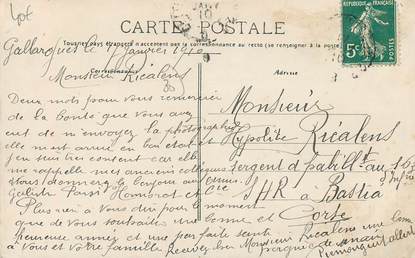 CARTE POSTALE
Tous les pays étrangers n'acceptent pas la correspondance au recto (se renseigner à la poste)
Correspondance
Adresse
RÉPUBLIQUE FRANÇAISE
5c
POSTES
Gallargues le janvier 1910
Monsieur Ricalens
Deux mots pour vous remercier
de la bonté que vous avez
eut de m'envoyer la photographie
elle m'est arrivé en bon état et
j'en suis très content car elle
me rappelle mes anciens collègues
vous donnerez le bonjour aux
Plus rien à vous dire pour le moment
que de vous souhaiter une bonne et
heureuse année et une parfaite santé
à vous et votre famille Recevez cher Monsieur Ricalens une bonne
poignée de main
Monsieur
Hypolite Ricalens
sergent d'habillt au
SHR à Bastia
Corse